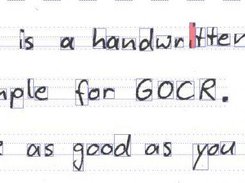 is a handwritten
mple for GOCR.
as good as you